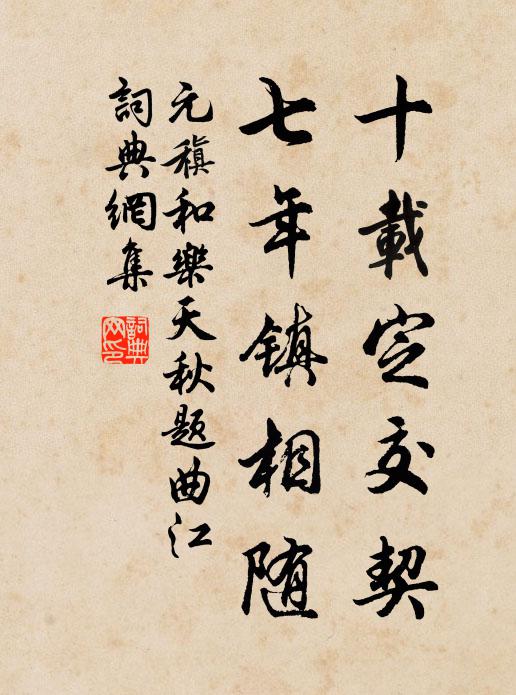 十載定交契
七年镇相随
元稹和樂天秋题曲江
詞典網集
詞典网印